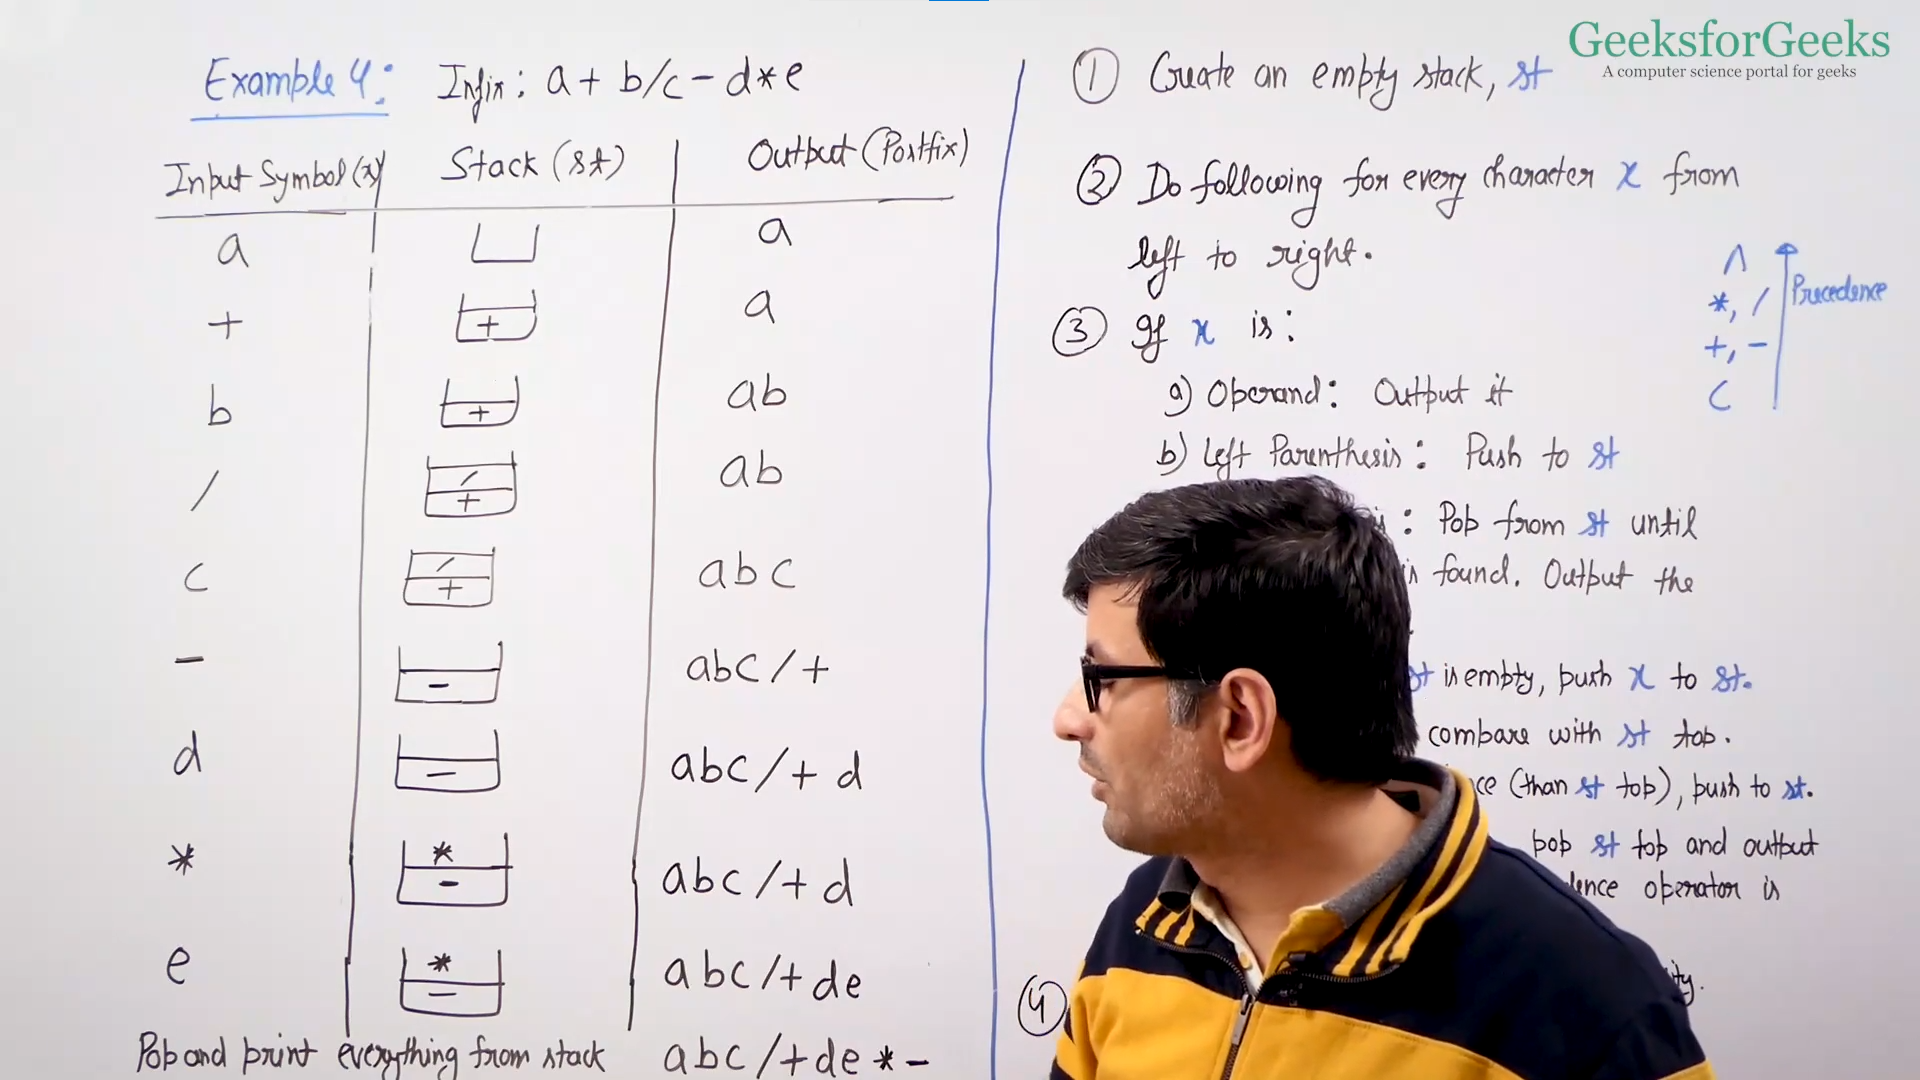 GeeksforGeeks
A computer science portal for geeks
Example 4: Infix: a + b/c - d*e
Input Symbol (x) Stack (st) Output (Postfix)
a a
+ + a
b + ab
/ / + ab
c / + abc
- - abc/+
d - abc/+d
* * - abc/+d
e * - abc/+de
Pop and print everything from stack abc/+de*-
① Create an empty stack, st
② Do following for every character x from
left to right.
③ If x is:
a) Operand: Output it
b) Left Parenthesis: Push to st
: Pop from st until
found. Output the
st is empty, push x to st.
compare with st top.
(than st top), push to st.
pop st top and output
operator is
④
^
*, /
+, -
(
Precedence